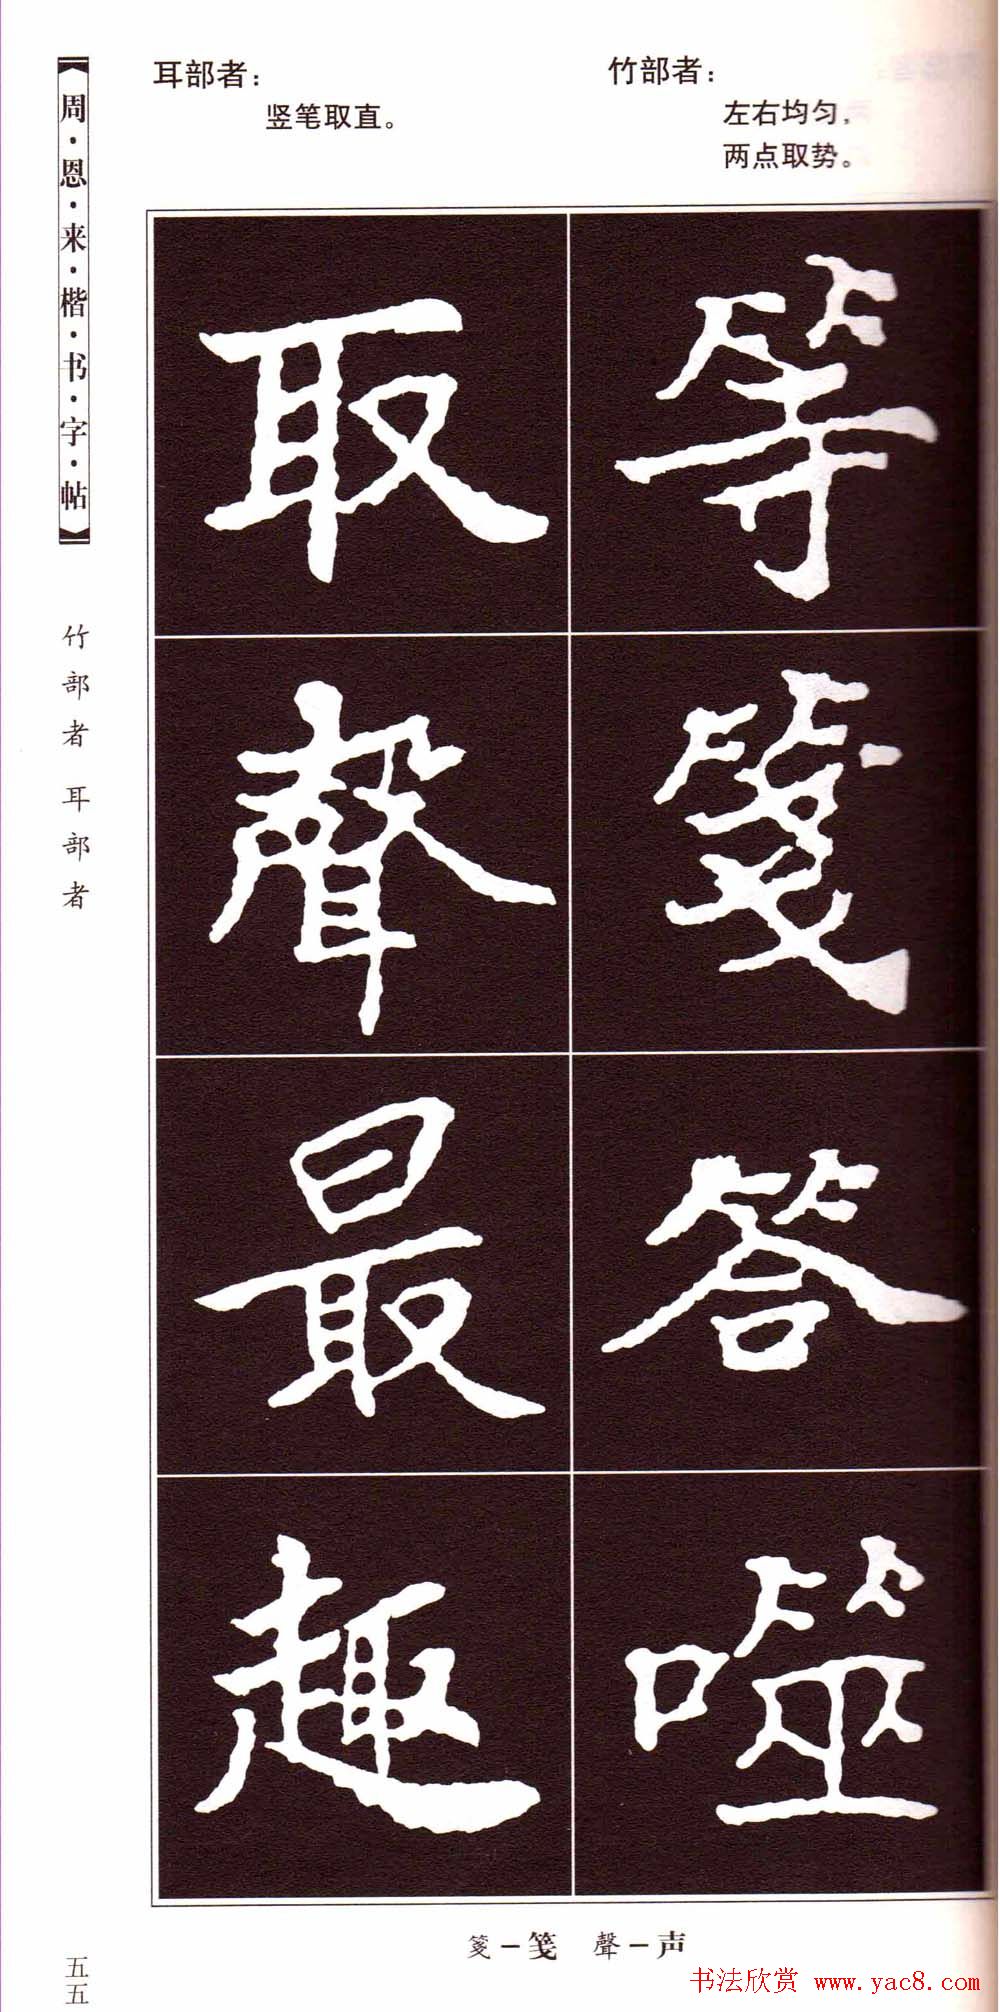 周·恩·来·楷·书·字·帖
竹部者 耳部者
五五
竹部者：
左右均匀，
两点取势。
耳部者：
竖笔取直。
等
箋
答
噬
取
聲
最
趣
箋－笺 聲－声
书法欣赏 www.yac8.com